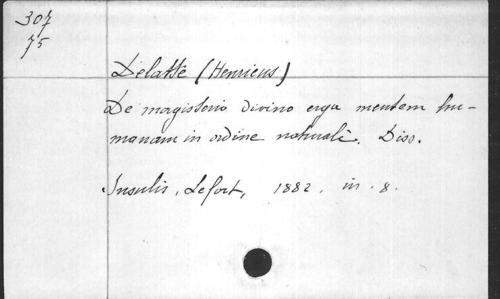 307
75
Delatte (Henricus)
De magisterio divino erga mentem hu-
manam in ordine naturali. Diss.
Insulis, Lefort, 1882, in-8.